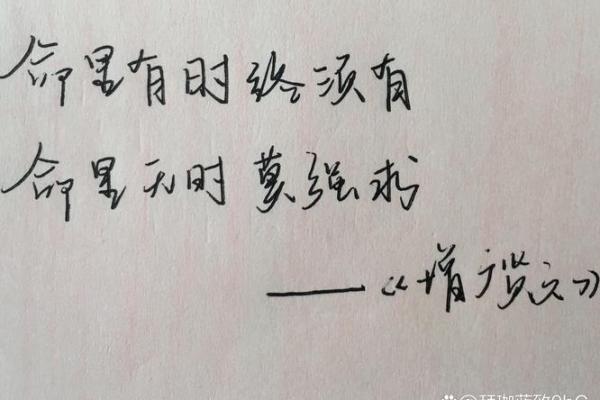 命里有时终须有
命里无时莫强求
——《增广贤文》